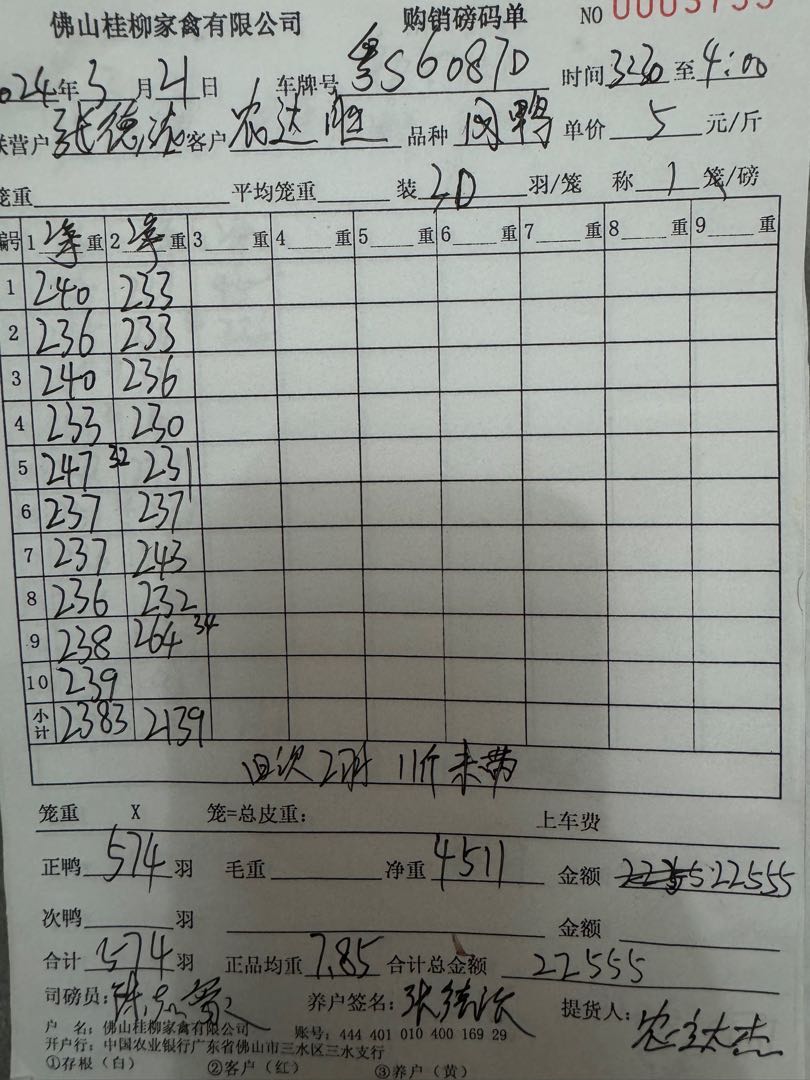 佛山桂柳家禽有限公司 购销磅码单 NO
2024年3月21日 车牌号 粤S6087D 时间 3:30 至 4:00
联营户 张德 客户 农达胜 品种 肉鸭 单价 5 元/斤
笼重 平均笼重 装 30 羽/笼 称 1 笼/磅
编号 1 净重 2 净重 3 重 4 重 5 重 6 重 7 重 8 重 9 重
1 240 233
2 236 233
3 240 236
4 233 230
5 247 32 231
6 237 237
7 237 243
8 236 232
9 238 264 34
10 239
小计 2383 2139
次2羽 11斤未带
笼重 X 笼=总皮重: 上车费
正鸭 574 羽 毛重 净重 4511 金额 22555
次鸭 羽 金额
合计 574 羽 正品均重 7.85 合计总金额 22555
司磅员: 养户签名: 张德 提货人: 农
户 名: 佛山桂柳家禽有限公司 账号: 444 401 010 400 169 29
开户行: 中国农业银行广东省佛山市三水区三水支行
①存根(白) ②客户(红) ③养户(黄)